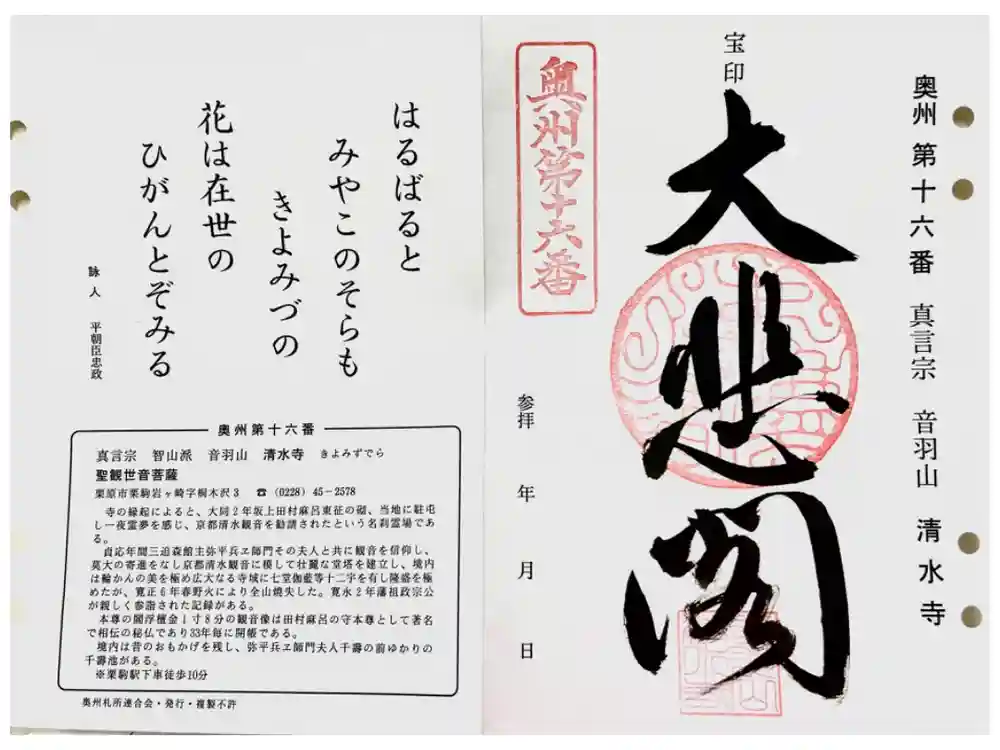 奥州第十六番　真言宗　音羽山　清水寺
宝印
大悲閣
奥州第十六番
参拝　年　月　日
はるばると
みやこのそらも
きよみづの
花は在世の
ひがんとぞみる
詠人　平朝臣忠政
奥州第十六番
真言宗　智山派　音羽山　清水寺　きよみずでら
聖観世音菩薩
栗原市栗駒岩ヶ崎字桐木沢3　☎ (0228) 45-2578
寺の縁起によると、大同2年坂上田村麻呂東征の砌、当地に駐屯
し一夜霊夢を感じ、京都清水観音を勧請されたという名刹霊場であ
る。
貞応年間三迫森館主弥平兵ヱ師門その夫人と共に観音を信仰し、
莫大の寄進をなし京都清水観音に模して壮麗な堂塔を建立し、境内
は輪かんの美を極め広大なる寺域に七堂伽藍等十二宇を有し隆盛を極
めたが、寛正6年春野火により全山焼失した。寛永2年藩祖政宗公
が親しく参詣された記録がある。
本尊の閻浮檀金1寸8分の観音像は田村麻呂の守本尊として著名
で相伝の秘仏であり33年毎に開帳である。
境内は昔のおもかげを残し、弥平兵ヱ師門夫人千壽の前ゆかりの
千壽池がある。
※栗駒駅下車徒歩10分
奥州札所連合会・発行・複製不許